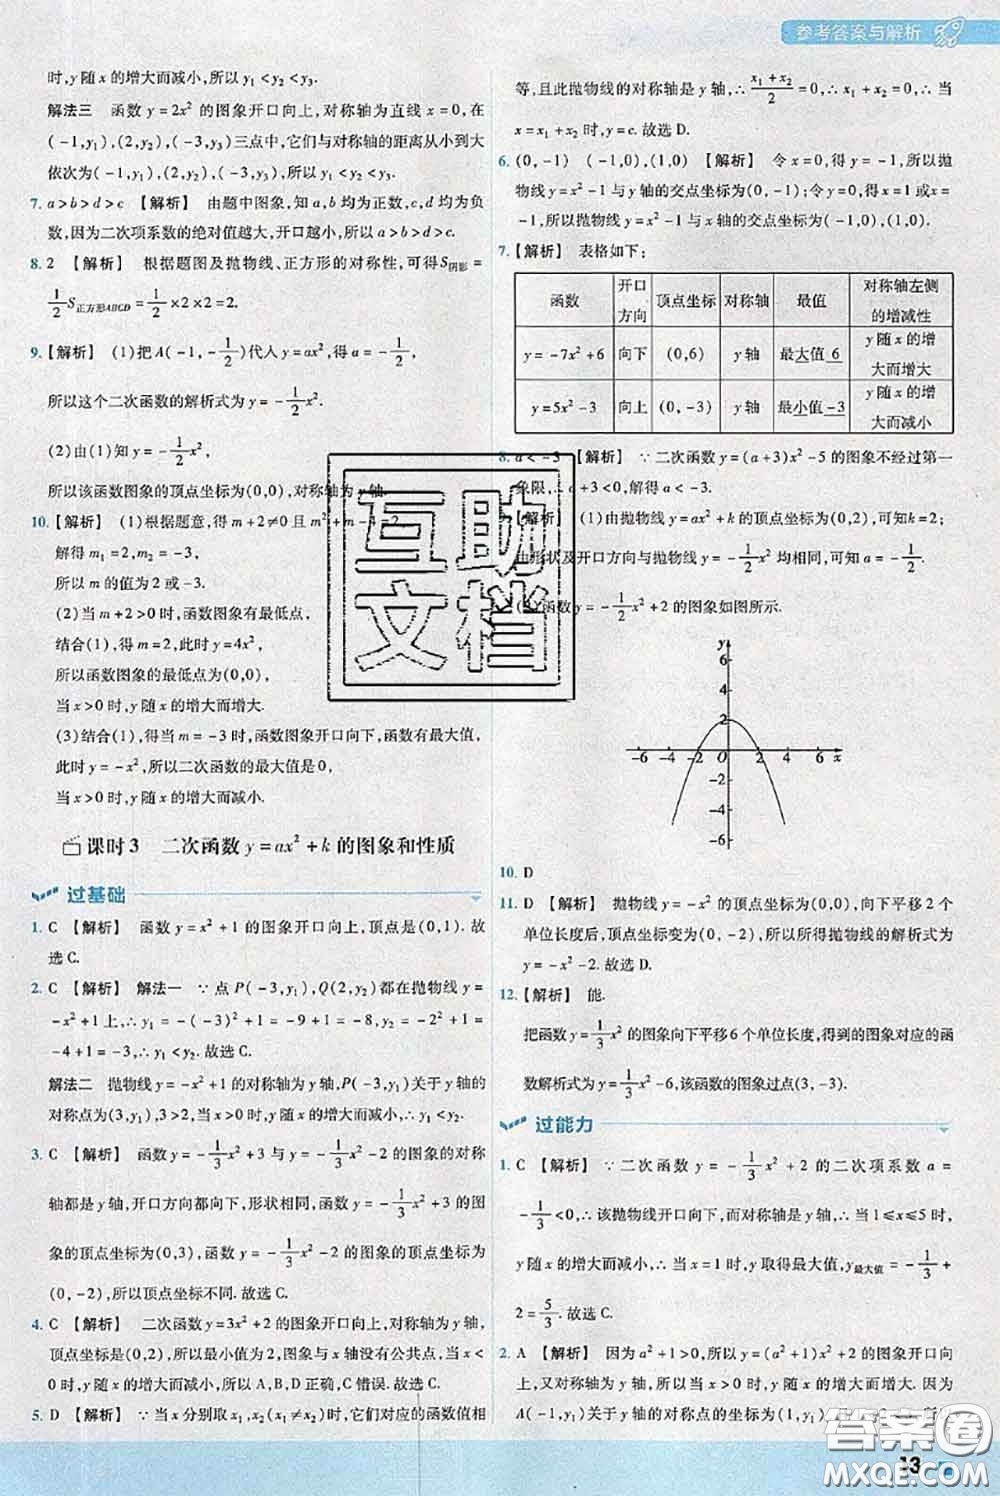 参考答案与解析
时,y随x的增大而减小,所以y₁<y₂<y₃.
解法三 函数y=2x²的图象开口向上,对称轴为直线x=0,在
(-1,y₁),(2,y₂),(-3,y₃)三点中,它们与对称轴的距离从小到大
依次为(-1,y₁),(2,y₂),(-3,y₃),所以y₁<y₂<y₃.
7. a>b>d>c 【解析】 由题中图象,知a,b为正数,c,d为负
数,因为二次项系数的绝对值越大,开口越小,所以a>b>d>c.
8. 2 【解析】 根据题图及抛物线、正方形的对称性,可得S阴影=
1/2 S正方形ABCD=1/2×2×2=2.
9. 【解析】 (1)把A(-1,-1/2)代入y=ax²,得a=-1/2,
所以这个二次函数的解析式为y=-1/2x².
(2)由(1)知y=-1/2x²,
所以该函数图象的顶点坐标为(0,0),对称轴为y轴.
10. 【解析】 (1)根据题意,得m+2≠0且m²+m-4=2,
解得m₁=2,m₂=-3,
所以m的值为2或-3.
(2)当m+2>0时,函数图象有最低点,
结合(1),得m=2,此时y=4x²,
所以函数图象的最低点为(0,0),
当x>0时,y随x的增大而增大.
(3)结合(1),得当m=-3时,函数图象开口向下,函数有最大值,
此时y=-x²,所以二次函数的最大值是0,
当x>0时,y随x的增大而减小.
课时3 二次函数y=ax²+k的图象和性质
过基础
1. C 【解析】 函数y=x²+1的图象开口向上,顶点是(0,1).故
选C.
2. C 【解析】 解法一 ∵点P(-3,y₁),Q(2,y₂)都在抛物线y=
-x²+1上,∴y₁=-(-3)²+1=-9+1=-8,y₂=-2²+1=
-4+1=-3,∴y₁<y₂.故选C.
解法二 抛物线y=-x²+1的对称轴为y轴,P(-3,y₁)关于y轴的
对称点为(3,y₁),3>2,当x>0时,y随x的增大而减小,∴y₁<y₂.
3. C 【解析】 函数y=-1/3x²+3与y=-1/3x²-2的图象的对称
轴都是y轴,开口方向都向下,形状相同,函数y=-1/3x²+3的图
象的顶点坐标为(0,3),函数y=-1/3x²-2的图象的顶点坐标为
(0,-2),所以顶点坐标不同.故选C.
4. C 【解析】 二次函数y=3x²+2的图象开口向上,对称轴为y轴,
顶点坐标是(0,2),所以最小值为2,图象与x轴没有公共点,当x<
0时,y随x的增大而减小,所以A,B,D正确,C错误.故选C.
5. D 【解析】 ∵当x分别取x₁,x₂(x₁≠x₂)时,它们对应的函数值相
等,且此抛物线的对称轴是y轴,∴(x₁+x₂)/2=0,∴x₁+x₂=0,∴当
x=x₁+x₂时,y=c.故选D.
6. (0,-1) (-1,0),(1,0) 【解析】 令x=0,得y=-1,所以抛
物线y=x²-1与y轴的交点坐标为(0,-1);令y=0,得x=1或x=
-1,所以抛物线y=x²-1与x轴的交点坐标为(-1,0),(1,0).
7. 【解析】 表格如下:
函数 开口方向 顶点坐标 对称轴 最值 对称轴左侧的增减性
y=-7x²+6 向下 (0,6) y轴 最大值6 y随x的增大而增大
y=5x²-3 向上 (0,-3) y轴 最小值-3 y随x的增大而减小
8. a<-3 【解析】 ∵二次函数y=(a+3)x²-5的图象不经过第一
象限,∴a+3<0,解得a<-3.
【解析】 (1)由抛物线y=ax²+k的顶点坐标为(0,2),可知k=2;
由形状及开口方向与抛物线y=-1/2x²均相同,可知a=-1/2.
(2)函数y=-1/2x²+2的图象如图所示.
y
6
4
2
-6 -4 -2 O 2 4 6 x
-2
-4
-6
10. D
11. D 【解析】 抛物线y=-x²的顶点坐标为(0,0),向下平移2个
单位长度后,顶点坐标变为(0,-2),所以所得抛物线的解析式为
y=-x²-2.故选D.
12. 【解析】 能.
把函数y=1/3x²的图象向下平移6个单位长度,得到的图象对应的函
数解析式为y=1/3x²-6,该函数的图象过点(3,-3).
过能力
1. C 【解析】 ∵二次函数y=-1/3x²+2的二次项系数a=
-1/3<0,∴该抛物线开口向下,而对称轴为y轴,∴当1≤x≤5时,
y随x的增大而减小,∴当x=1时,y取得最大值,y最大值=-1/3+
2=5/3.故选C.
2. A 【解析】 因为a²+1>0,所以y=(a²+1)x²+2的图象开口向
上,又对称轴为y轴,所以当x>0时,y随x的增大而增大.因为
A(-1,y₁)关于y轴的对称点的坐标为(1,y₁),
互助
文档
答案圈
MXQE.COM